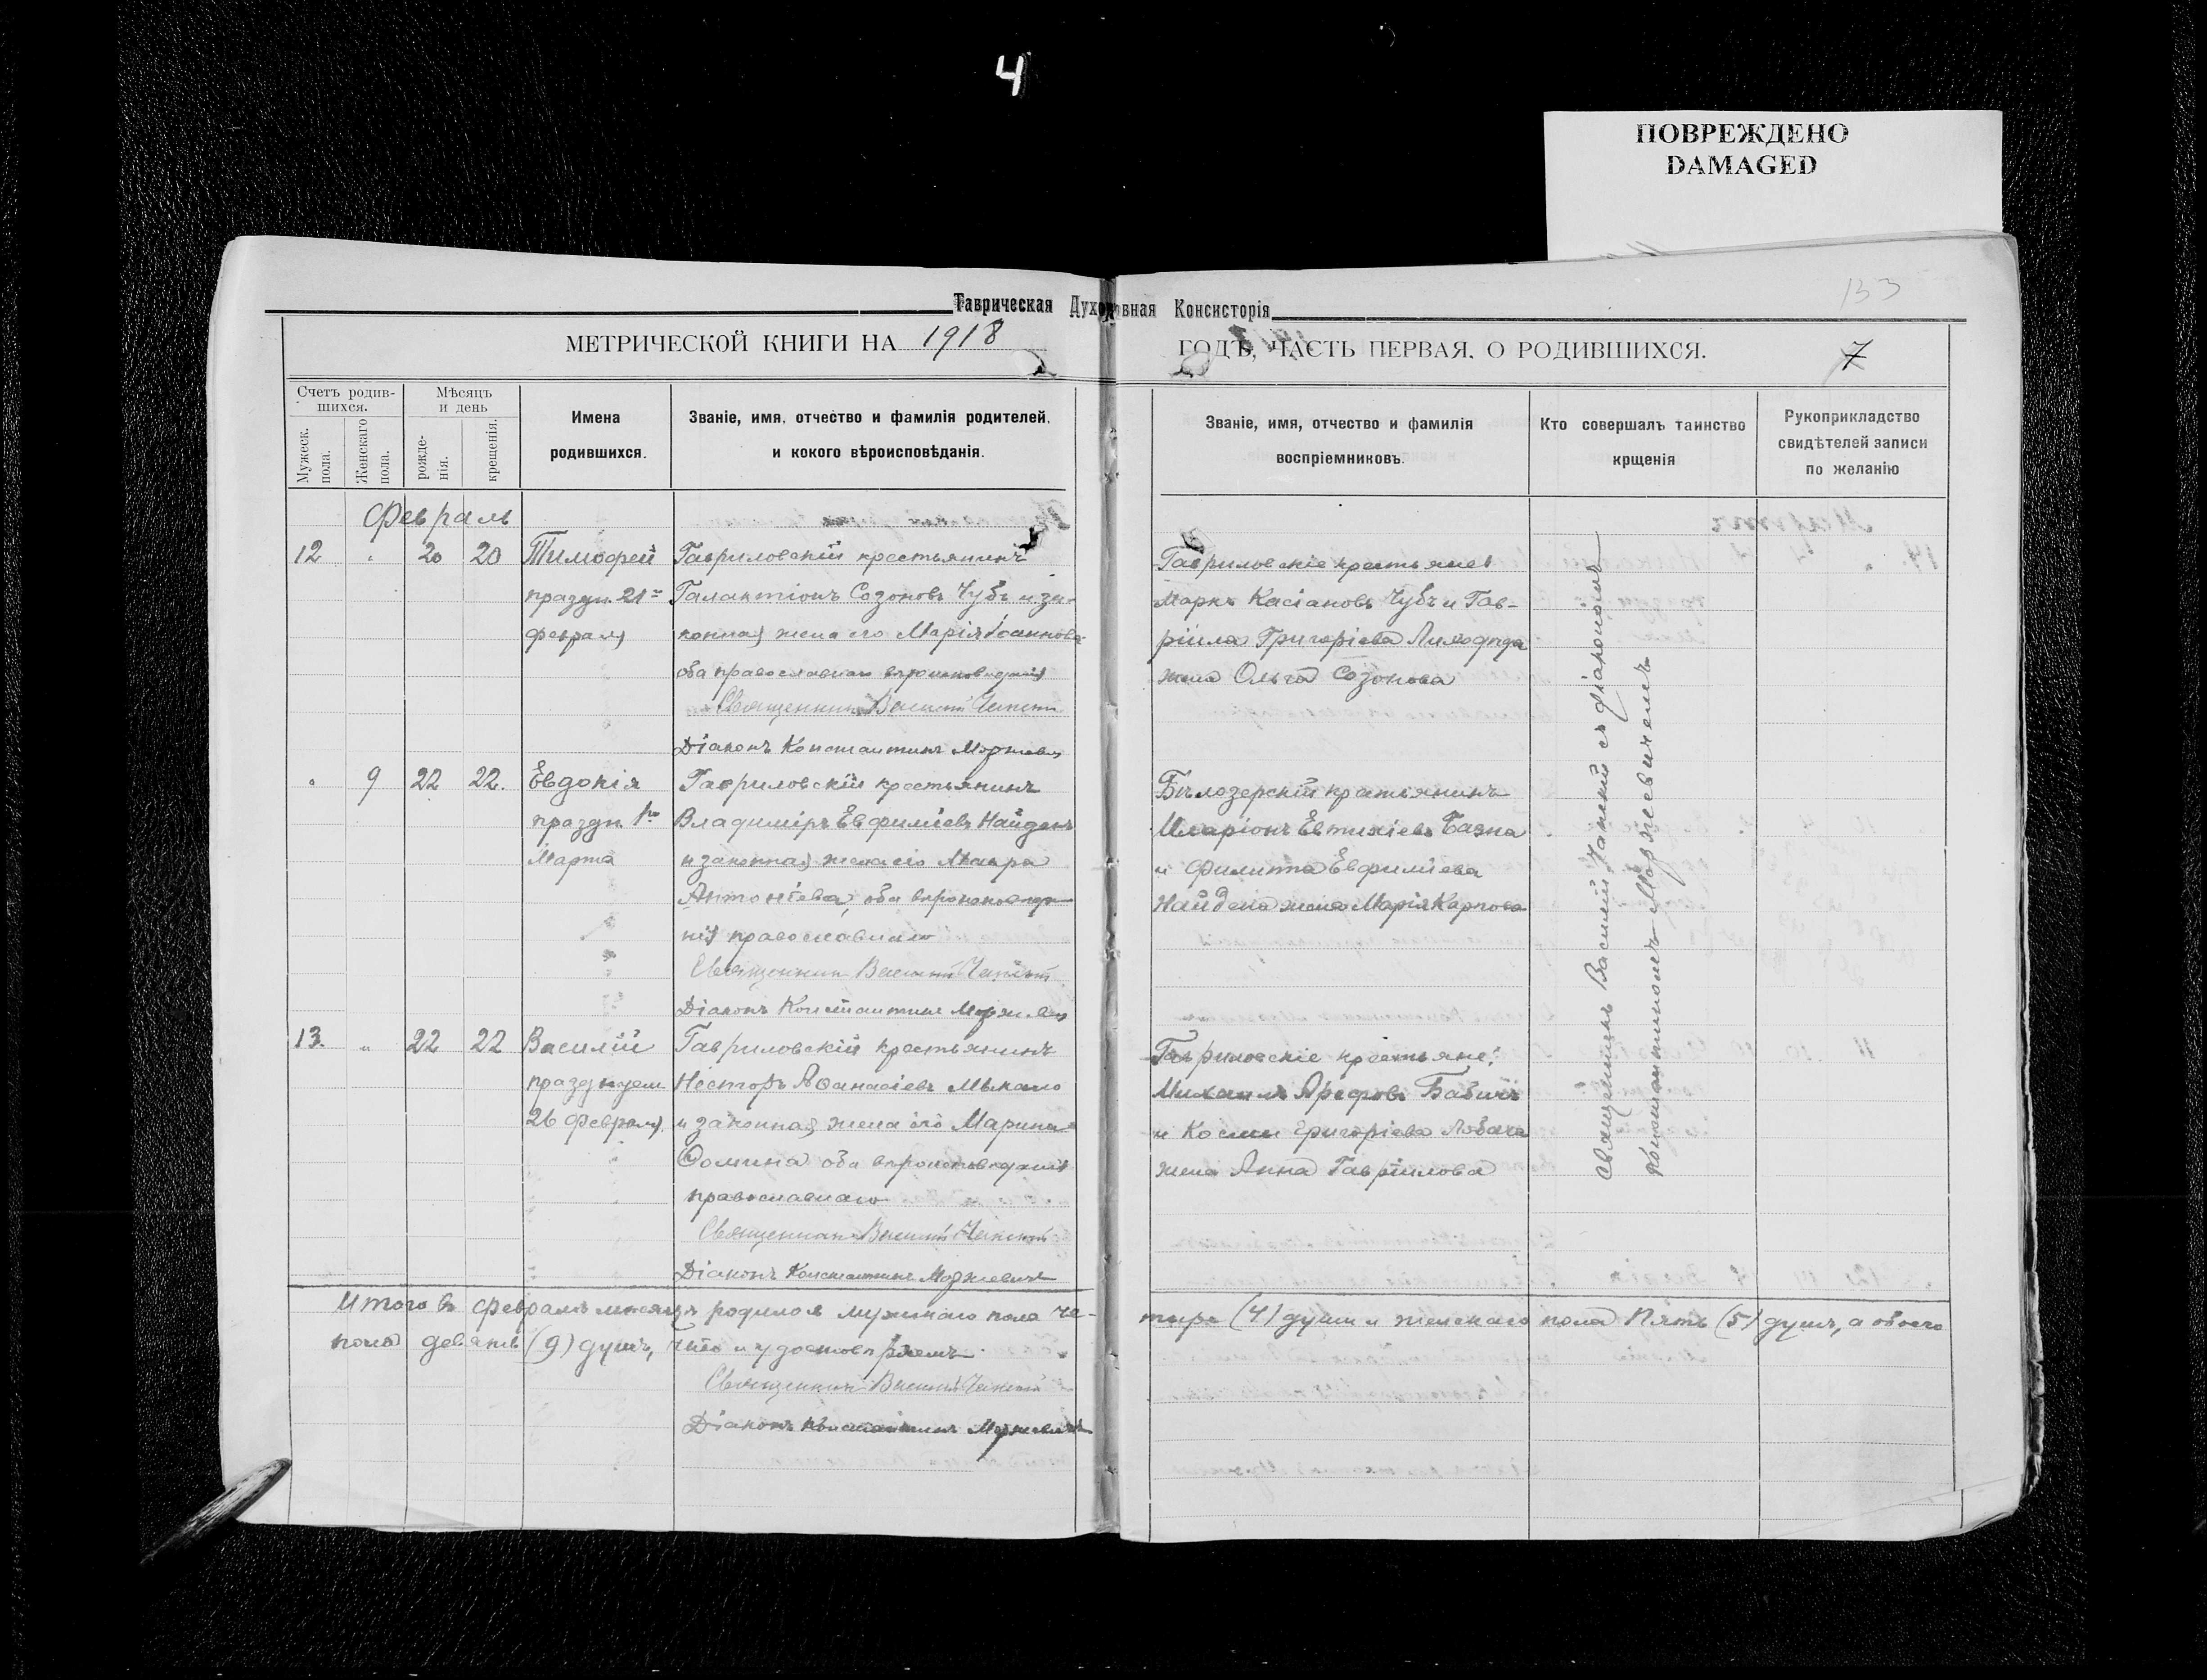 4
ПОВРЕЖДЕНО
DAMAGED
133
Таврическая Духовная Консисторія
МЕТРИЧЕСКОЙ КНИГИ НА 1918
ГОДЪ, ЧАСТЬ ПЕРВАЯ, О РОДИВШИХСЯ.
7
Счетъ родив-
шихся.
Мужеск.
пола.
Женскаго
пола.
Мѣсяцъ
и день
рожде-
нія.
крещенія.
Имена
родившихся.
Званіе, имя, отчество и фамилія родителей,
и кокого вѣроисповѣданія.
Званіе, имя, отчество и фамилія
воспріемниковъ.
Кто совершалъ таинство
крщенія
Рукоприкладство
свидѣтелей записи
по желанію
Февраль
12 " 20 20 Тимофей
праздн. 21го
февраля
Гавриловскій крестьянинъ
Галактіонъ Созоновъ Чубъ и за-
конная жена его Марія Іоаннова
оба православнаго вѣроисповѣданія
Священникъ Василій
Діаконъ Константинъ Моржевичъ
Гавриловскіе крестьяне:
Маркъ Касіановъ Чубъ и Гав-
ріила Григоріева
жена Ольга Созонова
" 9 22 22. Евдокія
праздн. 1го
Марта
Гавриловскій крестьянинъ
Владиміръ Евфиміевъ Найденъ
и законная жена его Мавра
Антоніева, оба вѣроисповѣда-
нія православнаго
Священникъ Василій
Діаконъ Константинъ Моржевичъ
Бѣлозерскій крестьянинъ
Иларіонъ Евтихіевъ
и Филиппа Евфиміева
Найдена жена Марія Карпова
13. " 22 22 Василій
празднуем.
26 февраля
Гавриловскій крестьянинъ
Несторъ Аѳанасіевъ
и законная жена его Марина
Ѳомина оба вѣроисповѣданія
православнаго
Священникъ Василій
Діаконъ Константинъ Моржевичъ
Гавриловскіе крестьяне:
Михаилъ Арефовъ Бабичъ
и Космы Григоріева
жена Анна Гавріилова
Священникъ Василій съ діакономъ
Константиномъ Моржевичемъ
Итого въ февралѣ мѣсяцѣ родилось мужскаго пола че-
тыре (4) души и женскаго пола пять (5) душъ, а обоего
пола девять (9) душъ, что и удостовѣряемъ.
Священникъ Василій
Діаконъ Константинъ Моржевичъ